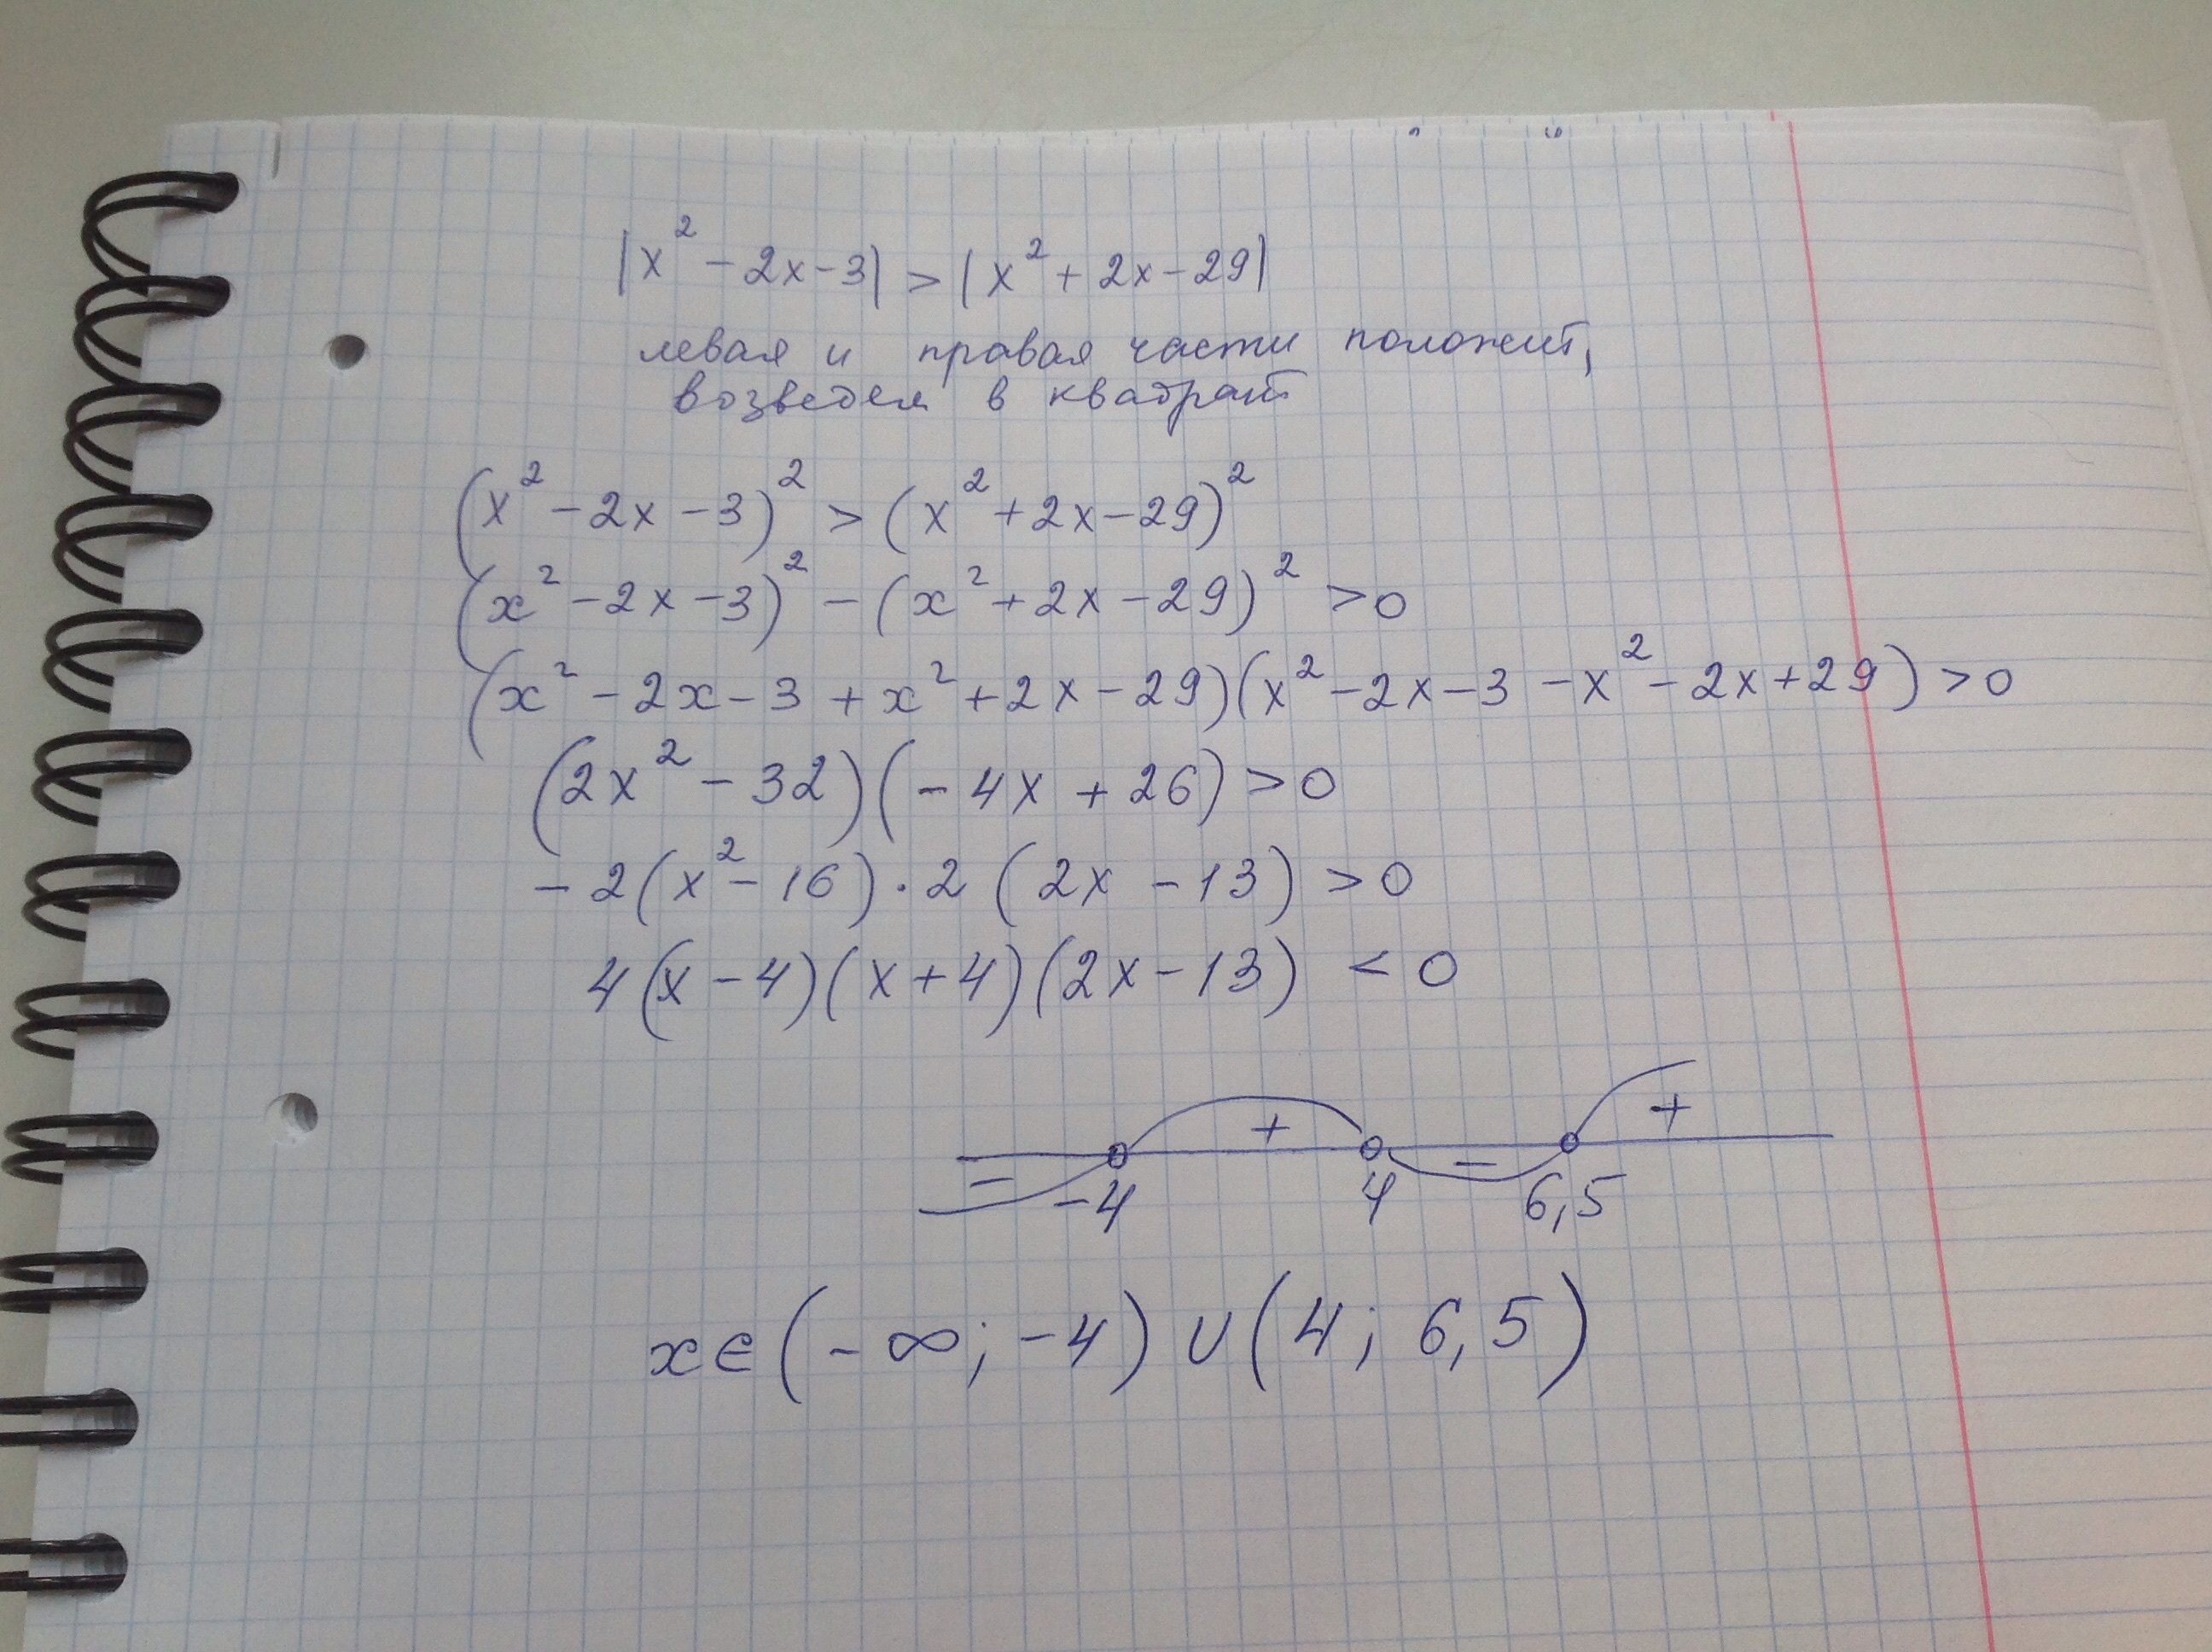 |x² - 2x - 3| > |x² + 2x - 29|
левая и правая части положит,
возведем в квадрат
(x² - 2x - 3)² > (x² + 2x - 29)²
(x² - 2x - 3)² - (x² + 2x - 29)² > 0
(x² - 2x - 3 + x² + 2x - 29)(x² - 2x - 3 - x² - 2x + 29) > 0
(2x² - 32)(- 4x + 26) > 0
- 2(x² - 16) · 2(2x - 13) > 0
4(x - 4)(x + 4)(2x - 13) < 0
- + - +
-4 4 6,5
x ∈ (-∞; -4) ∪ (4; 6,5)